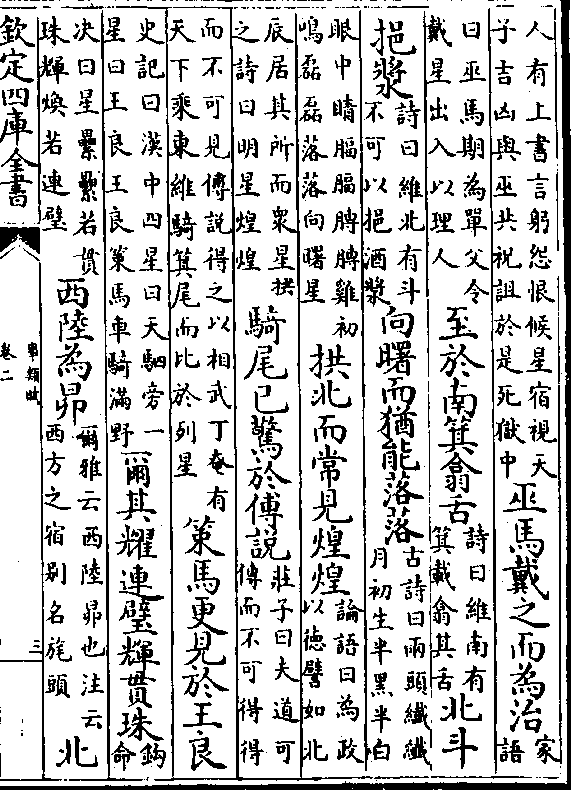 人有上書言躬怨恨候星宿視天子吉凶與巫共祝詛於是死獄中巫馬戴之而為治家語
曰巫馬期為單父令戴星出入以理人至於南箕翕舌詩曰維南有箕載翕其舌北斗
挹漿詩曰維北有斗不可以挹酒漿向曙而猶能落落古詩曰兩頭纖纖月初生半黑半白
眼中晴腷腷膊膊雞初鳴磊磊落落向曙星拱北而常見煌煌論語曰為政以德譬如北
辰居其所而衆星拱之詩曰明星煌煌騎尾已驚於傅說莊子曰夫道可傳而不可得得
而不可見傅說得之以相武丁奄有天下乘東維騎箕尾而比於列星策馬更見於王良
史記曰漢中四星曰天駟旁一星曰王良王良策馬車騎滿野爾其耀連璧輝貫珠鈎命
決曰星纍纍若貫珠輝煥若連璧西陸為昴爾雅云西陸昴也注云西方之宿别名旄頭北
欽定四庫全書
事類賦
卷二
三